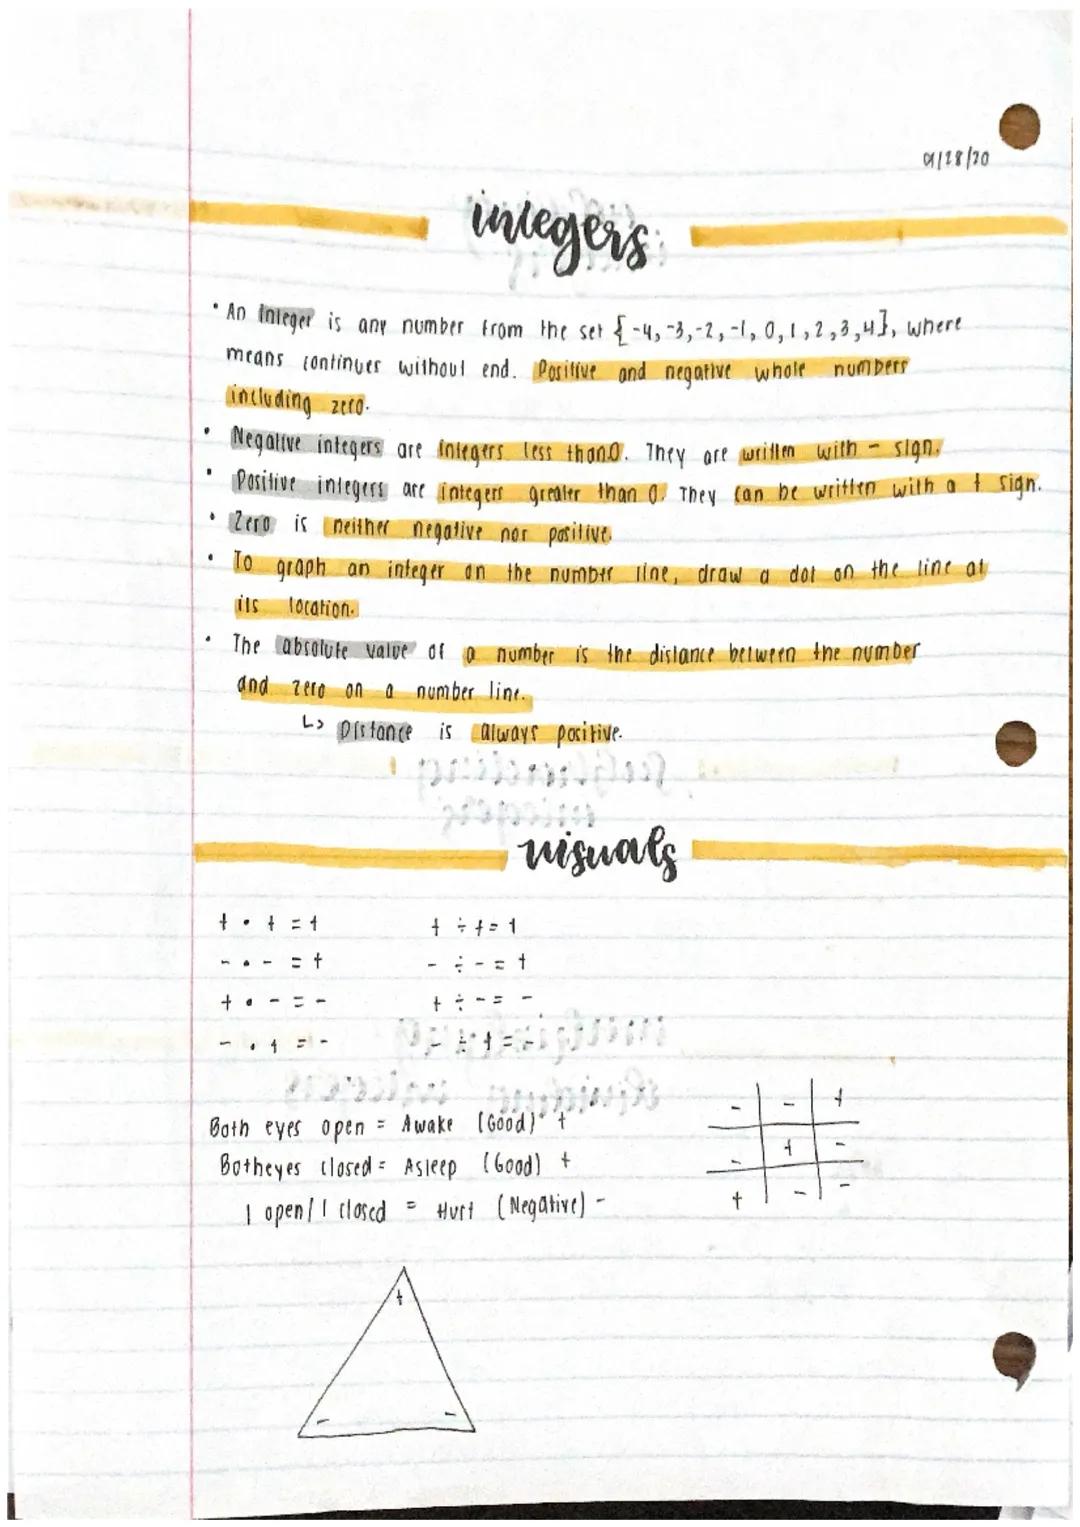 01/28/20
integers
• An Integer is any number from the set {-4,-3,-2,-1, 0,1,2,3,4}, where
means continues without end. Positive and negative whole numbers
including zero.
• Negative integers are integers less than 0. They are written with - sign.
• Positive integers are integers greater than 0. They can be written with a + sign.
• Zero is neither negative nor positive.
• To graph an integer on the number line, draw a dot on the line at
its location.
• The absolute value of a number is the distance between the number
and zero on a number line.
↳ Distance is always positive.
visuals
+ • + = + + ÷ + = +
- • - = + - ÷ - = +
+ • - = - + ÷ - = -
- • + = - - ÷ + = -
Both eyes open = Awake (Good) +
Both eyes closed = Asleep (Good) +
1 open/1 closed = Hurt (Negative) -
- - +
- + -
+ - -
+
- -